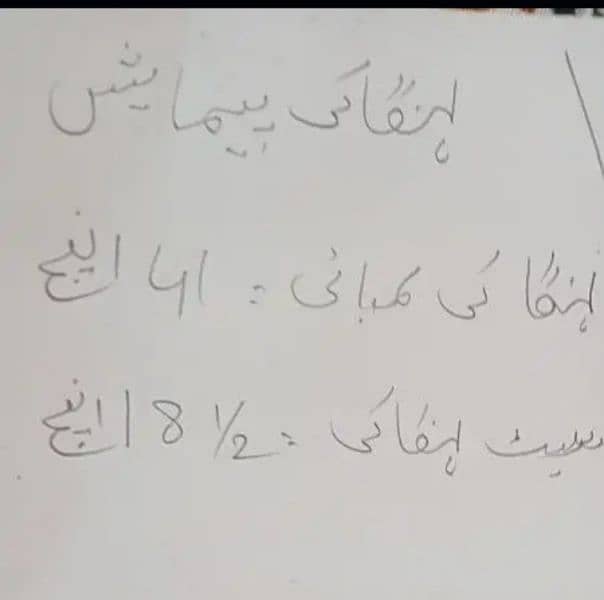 لہنگا کی پیمایش
لہنگا کی لمبائی : 41 اینچ
لہنگا کی : 18 1/2 اینچ